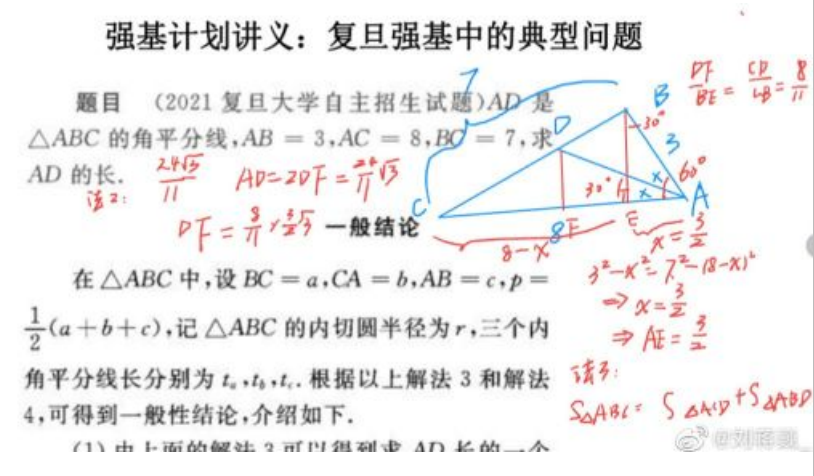 强基计划讲义：复旦强基中的典型问题
题目 （2021 复旦大学自主招生试题）AD 是
△ABC 的角平分线,AB = 3,AC = 8,BC = 7,求
AD 的长.
24√3/11
法2:
AD=2DF=24/11√3
DF=8/11×3/2√3
7
B
D
-30°
3
60°
x
x
30°
C
A
8
F
E
8-x
x=3/2
DF/BE=CD/CB=8/11
3²-x²=7²-(8-x)²
⇒x=3/2
⇒AE=3/2
法3:
S△ABC=S△ACD+S△ABD
一般结论
在△ABC 中,设 BC = a,CA = b,AB = c,p =
1/2(a+b+c),记△ABC 的内切圆半径为 r,三个内
角平分线长分别为 tₐ,t_b,t_c. 根据以上解法 3 和解法
4,可得到一般性结论,介绍如下.
(1) 由上面的解法 3 可以得到求 AD 长的一个